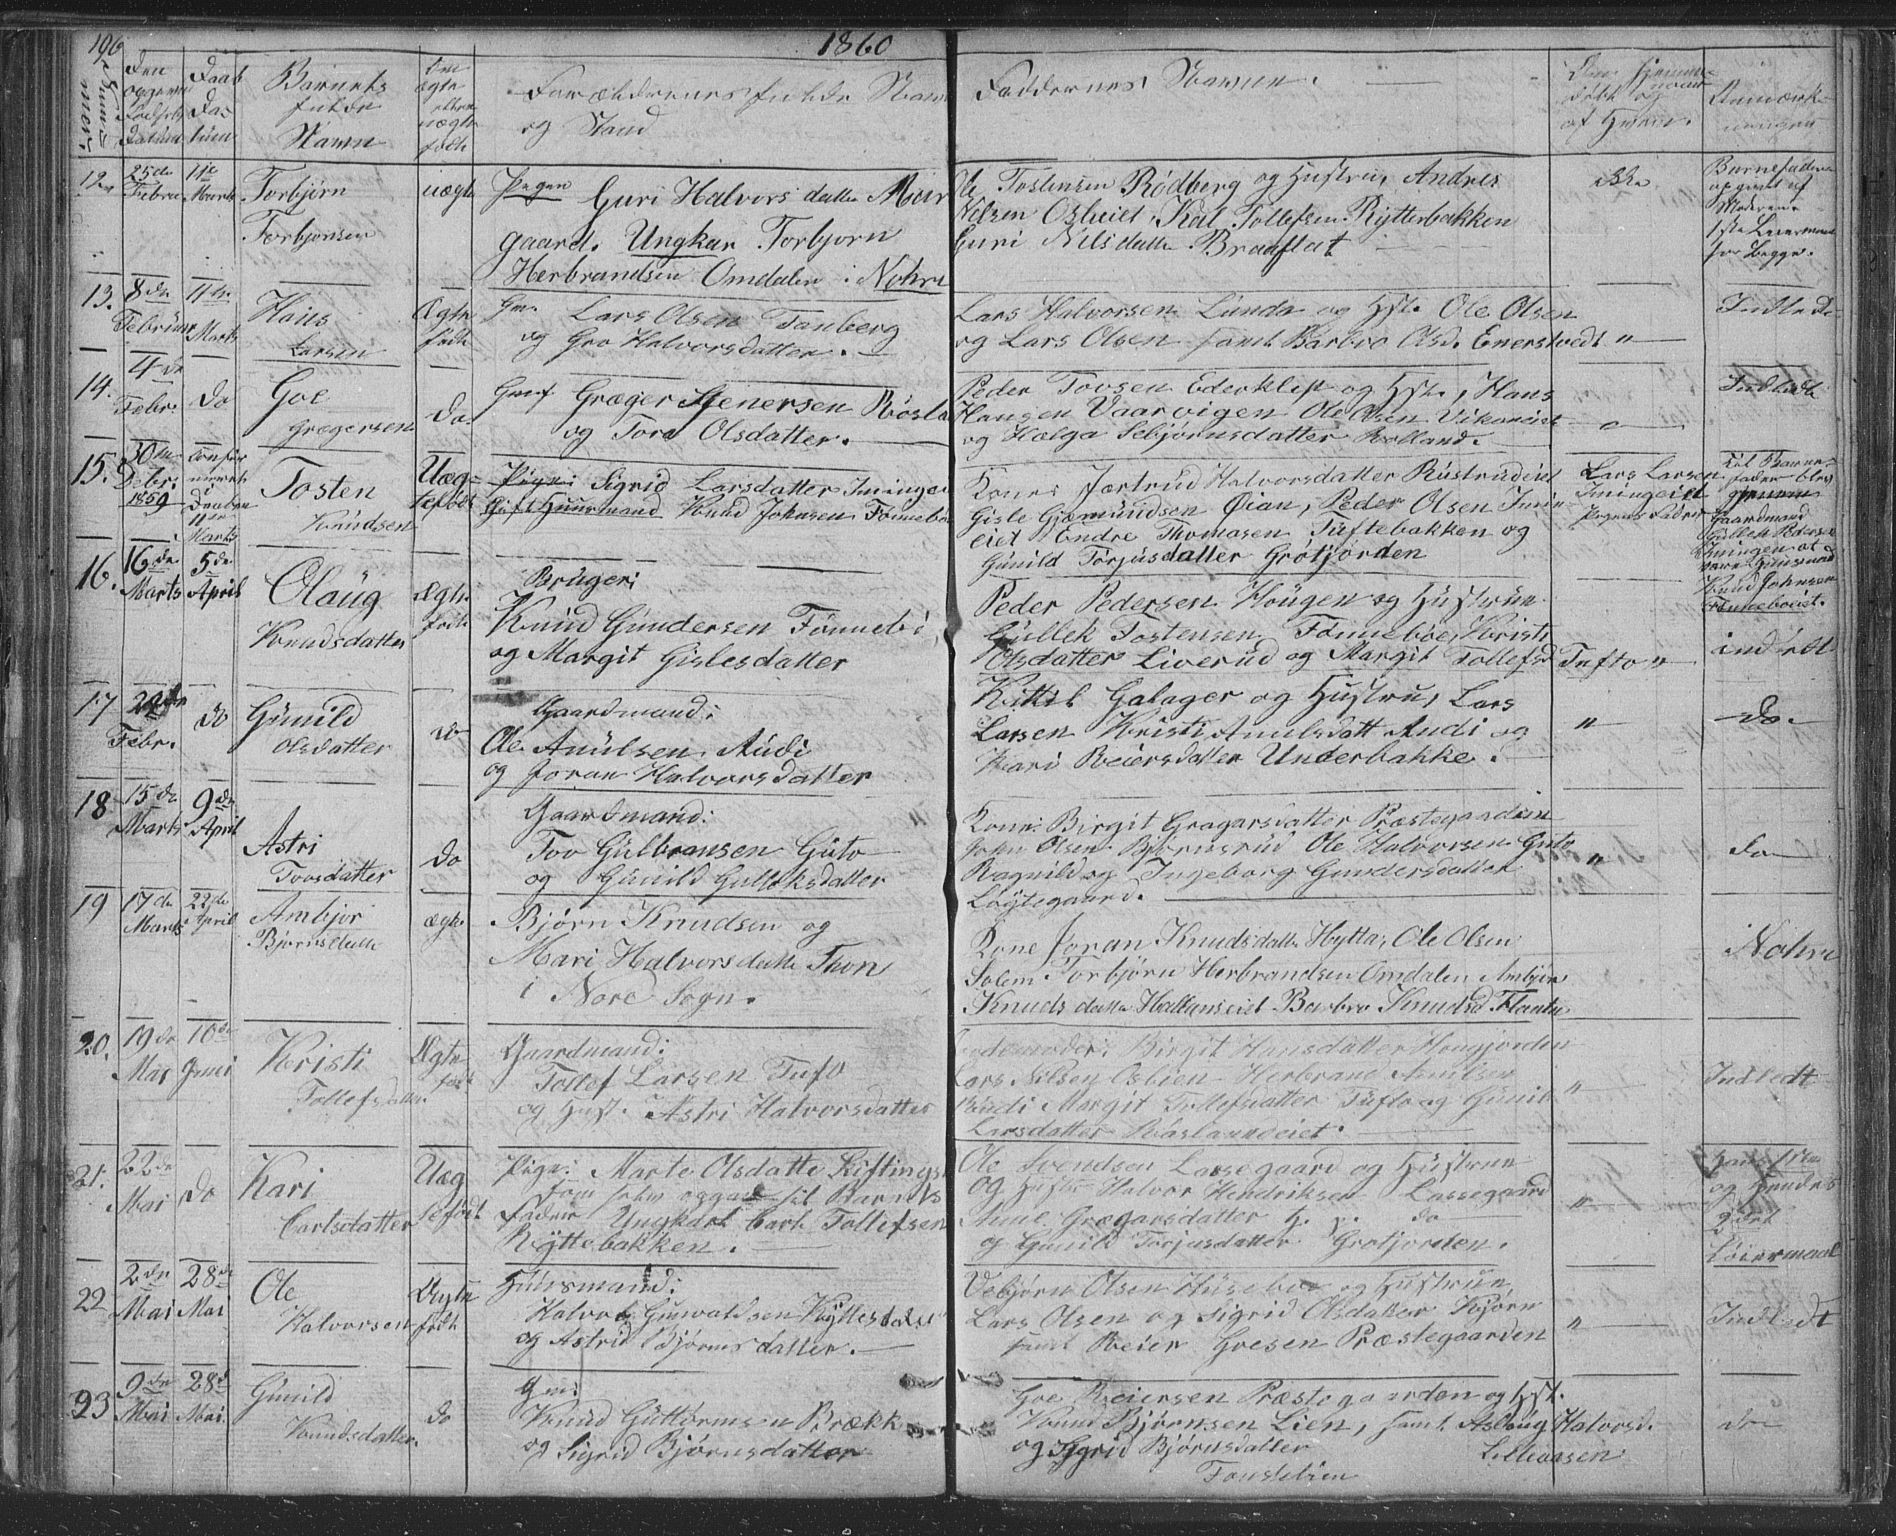 196 1860
Nummer. Den opgivne Fødsels Datum Daab Datum Barnets fulde Navn Om ægte eller uægte født Forældrenes fulde Navn og Stand Faddernes Navne. Anmærkninger
12. 25de Febru 11te Marts Torbjörn Torbjørnsen uægte Pigen Guri Halvorsdatter
gaard. Ungkar Torbjorn
Herbrandsen Omdalen i Nohre
Ole Tostensen Rødberg og Hustru, Andres
Nilsen Osleiet, Kal Tollefsen Rytterbakken
Guri Nilsdatter Braaflat
ikke
Barnefader opgivet af Moderen
1ste Leiermaal for Begge.
13. 8de Februar 11te Marts Hans Larsen Ægte født Gm. Lars Olsen Tanberg
og Gro Halvorsdatter.
Lars Halvorsen Lunda og Hst. Ole Olsen
og Lars Olsen samt Barbro Olsd. Enerstvedt "
Indledt
14. 4de Febr. Do Goe Grægersen Do. Gmd Græger Stenersen Rosla
og Tore Olsdatter.
Peder Tovsen Ederklep og Hst., Hans
Hansen Vaarvigen Ole Olsen
og Hælga Sebjørnsdatter Rolland.
Indledt
15. 30te Debr. 1859 11te Marts Tosten Knudsen Uægtefødt Pige: Sigrid Larsdatter Iminge
Gift Huusmand Knud Johnsen Fönnebö
Kone: Jærtrud Halvorsdatter Rustrudeiet
Gisle Gjæmundsen Øian, Peder Olsen Imin
eiet Endre Thomasen Tuftebakken og
Gunild Torjusdatter Grotjorden
Lars Larsen
Imingeiet
Pigens Fader
Til Barnefader blev
gjennem
Gaardmand
Gullek Pedersen
Imingen at
være Huusmand
Knud Johnsen
Fönneböeiet.
16. 16de Marts 5de April Olaug Knudsdatter Ægte født Bruger:
Knud Gundersen Fönnebö
og Margit Gislesdatter
Peder Pedersen Hougen og Hustrue
Gullek Tostensen Fönneböe, Kristi
Olsdatter Liverud og Margit Tollefsd Tufto "
indledt
17 Febr. Do Gunild Olsdatter do Gaardmand:
Ole Anulsen Rudi
og Joran Halvorsdatter
Kittil Galager og Hustru, Lars
Larsen Kristi Anulsdatt Rudi og
Kari Reiersdatter Underbakke.
" do
18 15de Marts 9de April Astri Tovsdatter do Gaardmand:
Tov Gulbransen Guto
og Gunild Gulleksdatter
Kone: Birgit Gragarsdatter Præstegaarden
John Olsen Bjørnsrud Ole Halvorsen Guto
Ragnild og Ingeborg Gundersdatter
Løytegaard.
" do
19 17de Marts 22de April Ambjør Bjørnsdatter ægte Bjørn Knudsen og
Mari Halvorsdatter Thon
i Nore Sogn.
Kone Joran Knudsdatter Hytta, Ole Olsen
Solem Torbjörn Herbrandsen Omdalen Ambjør
Knudsdatter Hallanseiet Barbro Knudsd Flanta
Nohre
20. 19de Mai 10de Juni Kristi Tollefsdatter Ægte født Gaardmand:
Tollef Larsen Tufto
og Hust. Astri Halvorsdatter
Godemoder: Birgit Hansdatter Hougjorden
Lars Nilsen Osbien Herbrand Anulsen
Rudi Margit Tollefsdatter Tufto og Gunil
Larsdatter Roslandeiet.
" Indledt
21. 22de Mai Do Kari Carlsdatter Uægtefødt Pige: Marte Olsdatter Kiftings
som har opgivet til Barnets
Fader Ungkarl Carl Tollefsen
Ryttebakken.
Ole Svendsen Larsegaard og Hustrue
og Halvor Hendriksen Lassegaard
Anne Grægarsdatter do
og Gunild Torjusdatter Grotjorden.
"
Hans 1ste
og Hendes
2det
Leiermaal
22 2de Mai 28de Mai Ole Halvorsen Ægte født Huusmand:
Halvor Gunvaldsen Kyllesdalen
og Astrid Bjørnsdatter.
Vebjørn Olsen Huseboe og Hustrue
Lars Olsen og Sigrid Olsdatter Kjörn
samt Reier Goesen Præstegaarden
" Indledt
23 9de Mai 28de Mai Gunild Knudsdatter. do Gm:
Knud Guttormsen Brække
og Sigrid Bjørnsdatter
Goe Reiersen Præstegaarden og Hst.
Knud Bjørnsen Lien, samt Aslaug Halvorsd.
og Sigrid Bjørnsdatter Lilleaasen
do